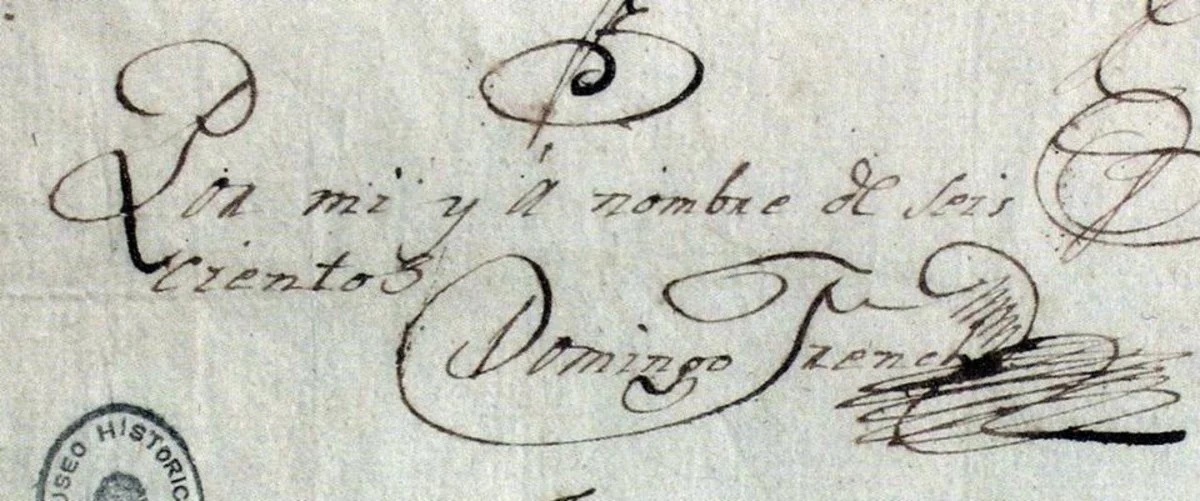 Por mi y á nombre de seis
cientos
Domingo French
USEO HISTORIC